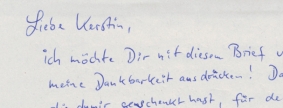 Liebe Kerstin,
ich möchte Dir mit diesen Brief
meine Dankbarkeit ausdrücken! Da
geschenkt hast, für de